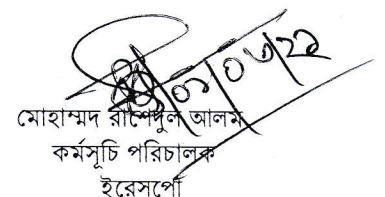 ০১/০৬/২২
মোহাম্মদ রাশেদুল আলম
কর্মসূচি পরিচালক
ইরেসপো